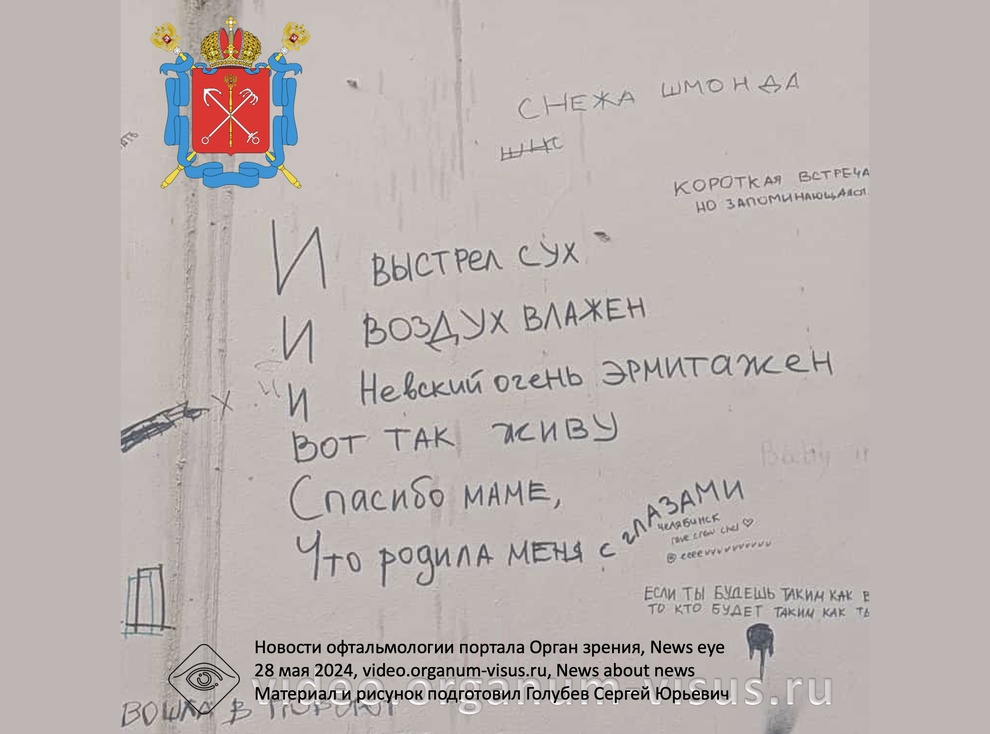 СНЕЖА ШМОНДА
КОРОТКАЯ ВСТРЕЧА
НО ЗАПОМИНАЮЩАЯСЯ
И ВЫСТРЕЛ СУХ
И ВОЗДУХ ВЛАЖЕН
И Невский очень ЭРМИТАЖЕН
ВОТ ТАК ЖИВУ
Спасибо МАМЕ,
Что родилА МЕНЯ с глАЗАМИ
Baby
ЧЕЛЯБИНСК
crew chel ♡
@eeeevvvvvvvvvv
ЕСЛИ ТЫ БУДЕШЬ ТАКИМ КАК В
ТО КТО БУДЕТ ТАКИМ КАК ТЫ
Новости офтальмологии портала Орган зрения, News eye
28 мая 2024, video.organum-visus.ru, News about news
Материал и рисунок подготовил Голубев Сергей Юрьевич
video.organum-visus.ru
ВОШЛА В